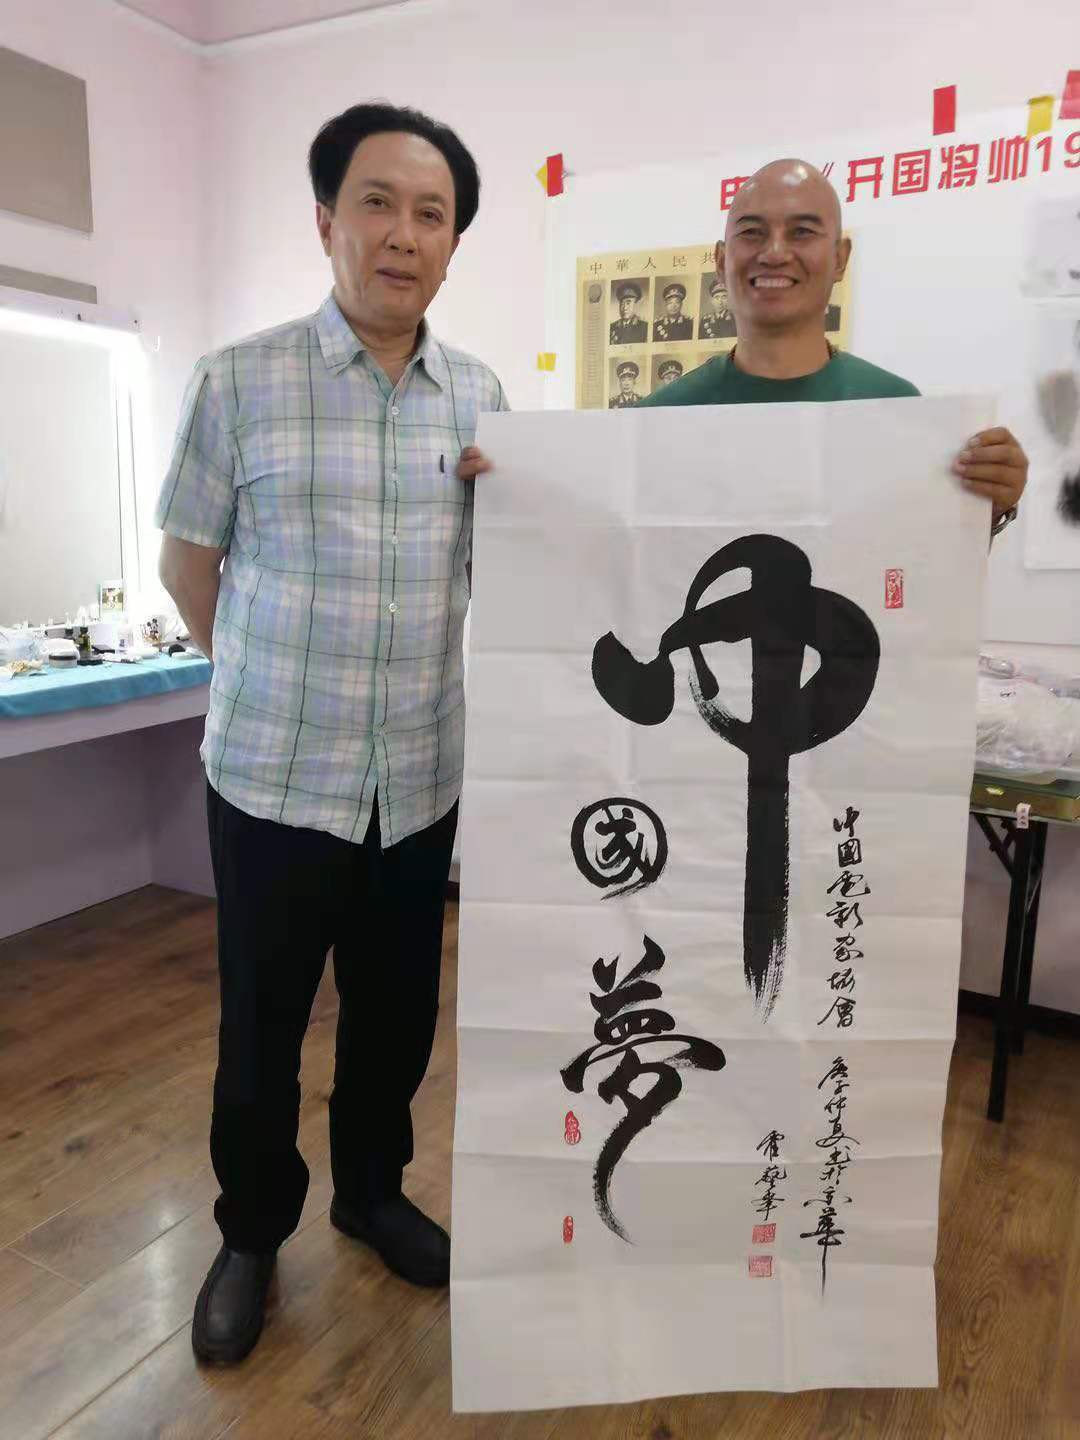 《开国将帅19
中華人民共
中
國
夢
中國電影家協會
庚子仲夏書於京華
霍藝峯